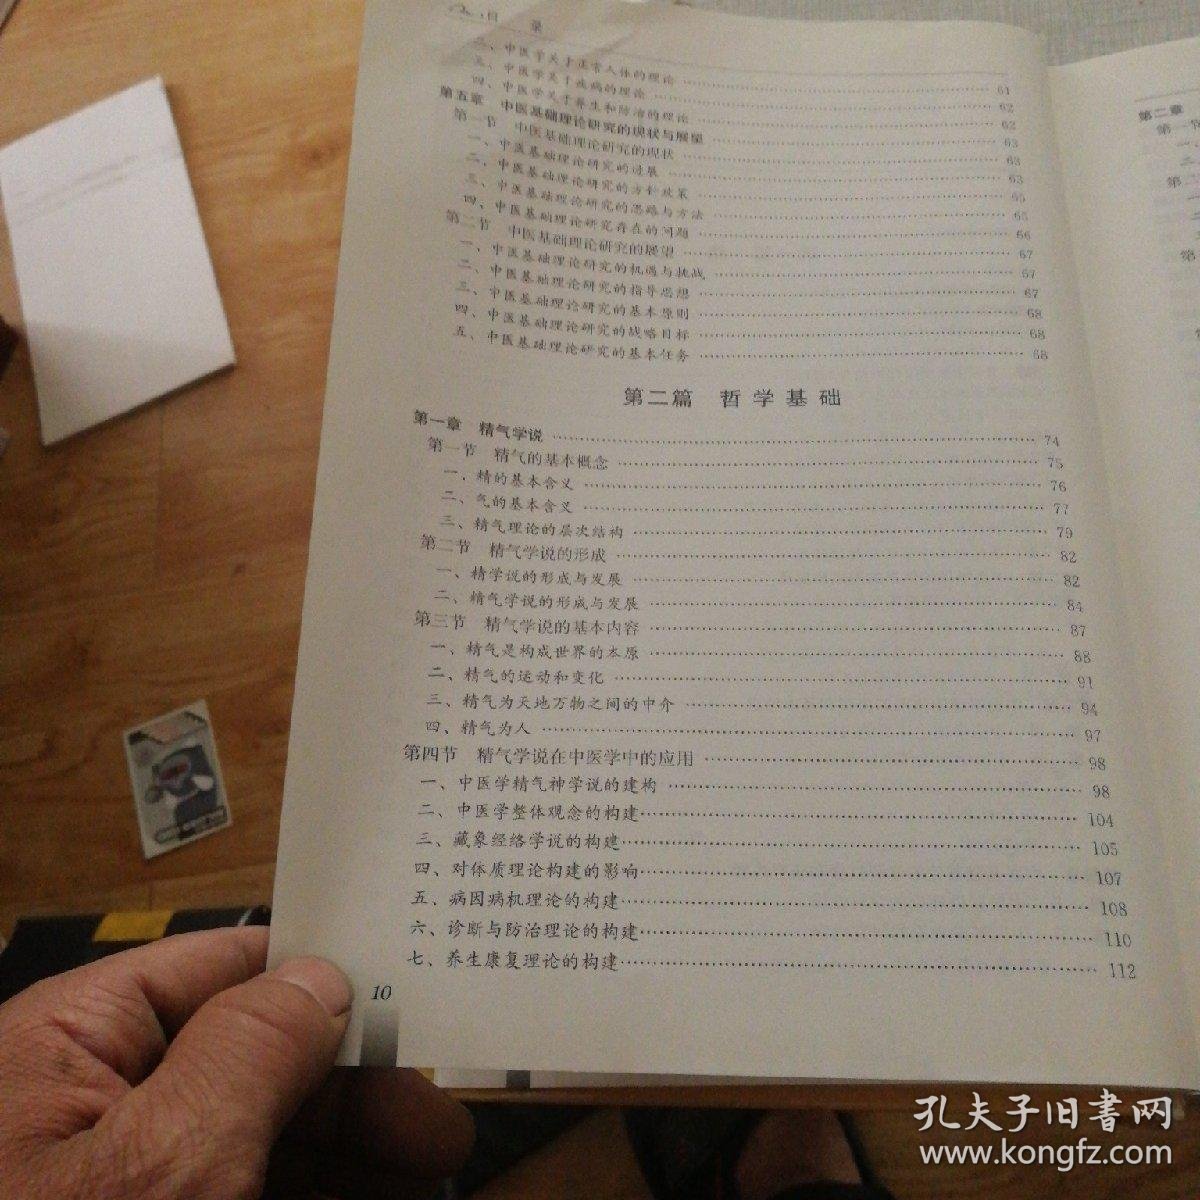 目 录
二、中医学关于正常人体的理论 61
三、中医学关于疾病的理论 62
四、中医学关于养生和防治的理论 62
第五章 中医基础理论研究的现状与展望 63
第一节 中医基础理论研究的现状 63
一、中医基础理论研究的进展 63
二、中医基础理论研究的方针政策 65
三、中医基础理论研究的思路与方法 65
四、中医基础理论研究存在的问题 66
第二节 中医基础理论研究的展望 67
一、中医基础理论研究的机遇与挑战 67
二、中医基础理论研究的指导思想 67
三、中医基础理论研究的基本原则 68
四、中医基础理论研究的战略目标 68
五、中医基础理论研究的基本任务 68
第二篇 哲学基础
第一章 精气学说 74
第一节 精气的基本概念 75
一、精的基本含义 76
二、气的基本含义 77
三、精气理论的层次结构 79
第二节 精气学说的形成 82
一、精学说的形成与发展 82
二、精气学说的形成与发展 84
第三节 精气学说的基本内容 87
一、精气是构成世界的本原 88
二、精气的运动和变化 91
三、精气为天地万物之间的中介 94
四、精气为人 97
第四节 精气学说在中医学中的应用 98
一、中医学精气神学说的建构 98
二、中医学整体观念的构建 104
三、藏象经络学说的构建 105
四、对体质理论构建的影响 107
五、病因病机理论的构建 108
六、诊断与防治理论的构建 110
七、养生康复理论的构建 112
10
第二章
第一节
一、
二
第二
第
孔夫子旧書网
www.kongfz.com